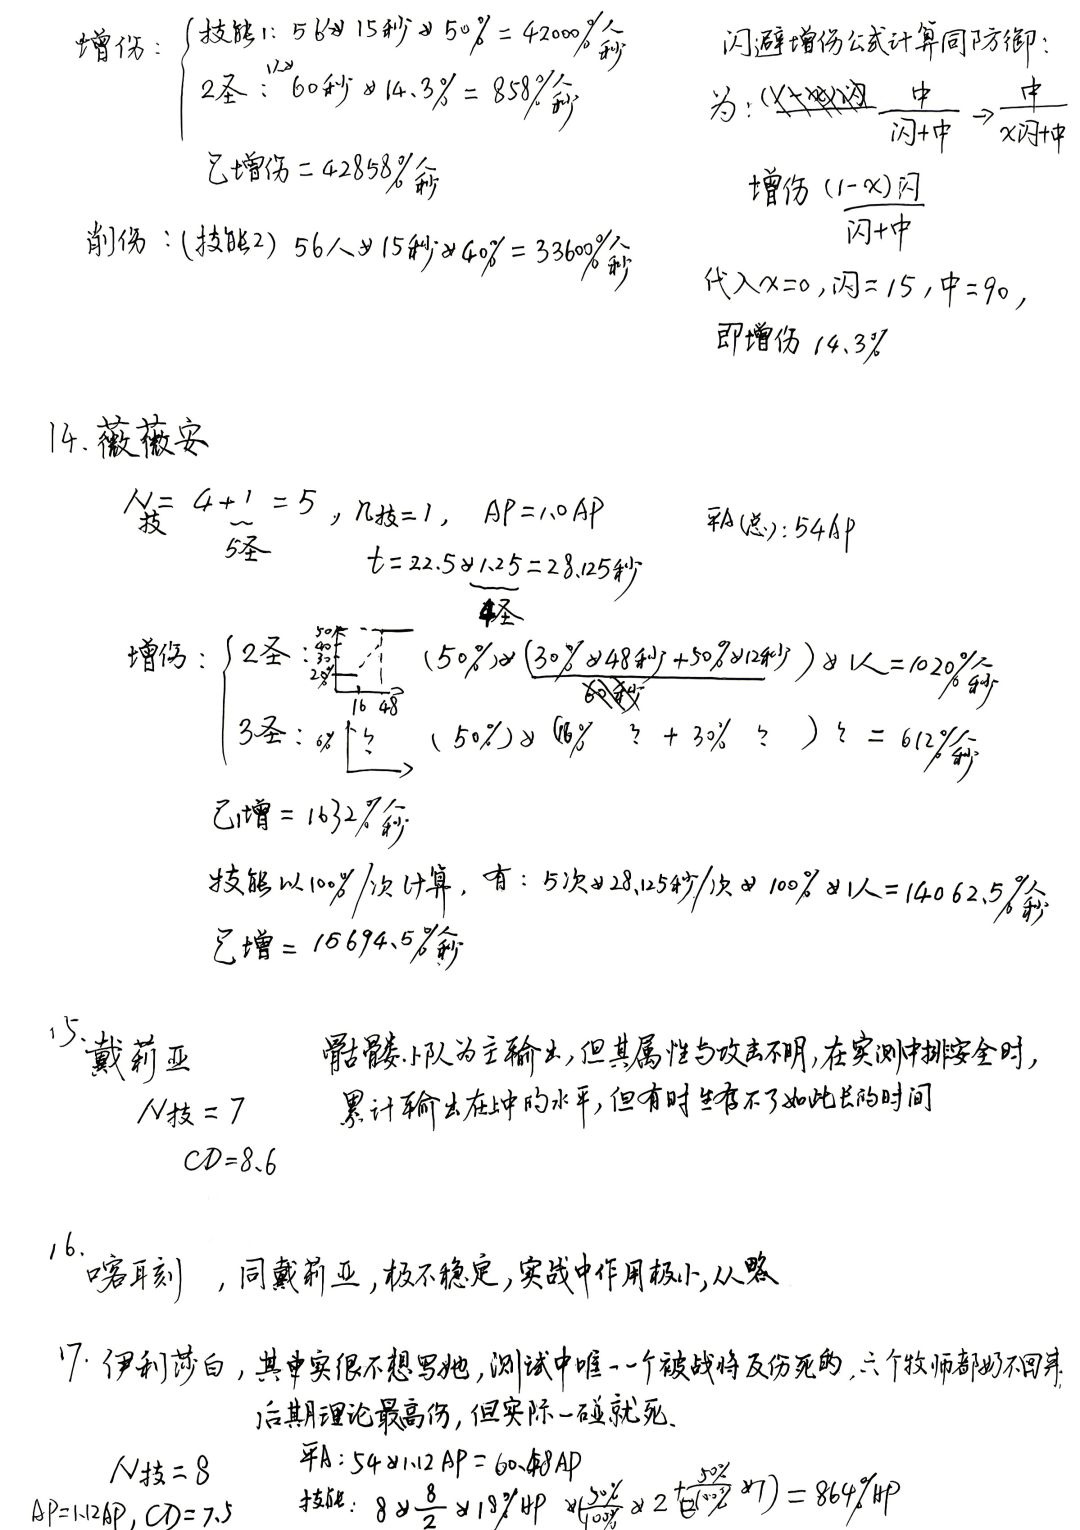 增伤: 技能1: 56×15秒×50% = 42000%人/秒
2圣: 1人×60秒×14.3% = 858%人/秒
已增伤 = 42858%人/秒
削伤: (技能2) 56人×15秒×40% = 33600%人/秒
闪避增伤公式计算同防御:
为: 中/(闪+中) → 中/(x闪+中)
增伤 (1-x)闪/(闪+中)
代入x=0, 闪=15, 中=90,
即增伤 14.3%
14. 薇薇安
N技 = 4+1 = 5, n技=1, AP=1.0AP 平A(总): 54AP
5圣
t=22.5×1.25=28.125秒
4圣
增伤: 2圣: 50% 40 30 20% 16 48 (50%)×(30%×48秒+50%×12秒)×1人=1020%人/秒
60秒
3圣: 6% ? (50%)×(16% ? + 30% ? ) ? = 612%人/秒
已增 = 1632%人/秒
技能以100%/次计算, 有: 5次×28.125秒/次×100%×1人=14062.5%人/秒
已增 = 15694.5%人/秒
15. 戴莉亚 骷髅小队为主输出,但其属性与攻击不明,在实测中排安全时,
N技=7 累计输出在上中的水平,但有时生存不了如此长的时间
CD=8.6
16. 喀耳刻, 同戴莉亚, 极不稳定, 实战中作用极小, 从略
17. 伊利莎白, 其实很不想写她, 测试中唯一一个被战将反伤死的, 六个牧师都奶不回来
后期理论最高伤, 但实际一碰就死.
N技=8 平A: 54×1.12AP=60.48AP
AP=1.12AP, CD=7.5 技能: 8×8/2×18%HP×(50%/100%×2+50%/100%×1)=864%HP